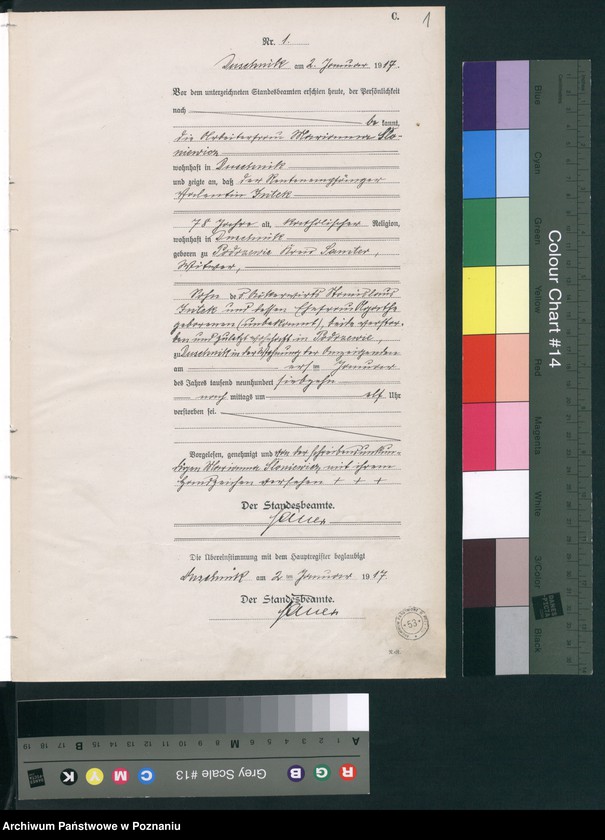 C.
1
Nr. 1.
Duschnik am 2. Januar 1917.
Vor dem unterzeichneten Standesbeamten erschien heute, der Persönlichkeit
nach
be kannt,
die Arbeiterfrau Marianna Slo-
niewicz
wohnhaft in Duschnik
und zeigte an, daß der Rentenempfänger
Valentin Intek
78 Jahre alt, katholischer Religion,
wohnhaft in Duschnik
geboren zu Podrzewie Kreis Samter,
Witwer,
Sohn des Ackerwirts Stanislaus
Intek und dessen Ehefrau Agathe
geborenen (unbekannt), beide verstor-
ben und zuletzt wohnhaft in Podrzewie,
zu Duschnik in der Wohnung der Anzeigenden
am ersten Januar
des Jahres tausend neunhundert siebzehn
nach mittags um elf Uhr
verstorben sei.
Vorgelesen, genehmigt und von der schreibensunkun-
digen Marianna Sloniewicz mit ihrem
Handzeichen versehen + + +
Der Standesbeamte.
Die Übereinstimmung mit dem Hauptregister beglaubigt
Duschnik am 2ten Januar 1917
Der Standesbeamte.
53
Colour Chart #14
Blue
Cyan
Green
Yellow
Red
Magenta
White
3/Color
Black
Grey Scale #13
R G B C M Y K
A 1 2 3 4 5 6 M 8 9 10 11 12 13 14 15 B 17 18 19
Archiwum Państwowe w Poznaniu